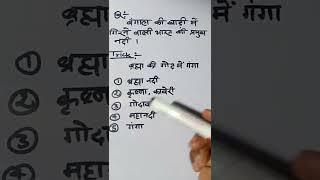 Q:-
बंगाल की खाड़ी में
गिरने वाली भारत की प्रमुख
नदी ।
Trick:-
ब्रह्मा की गोद में गंगा
① ब्रह्मा नदी
② कृष्णा, कावेरी
③ गोदाव
④ महानदी
⑤ गंगा